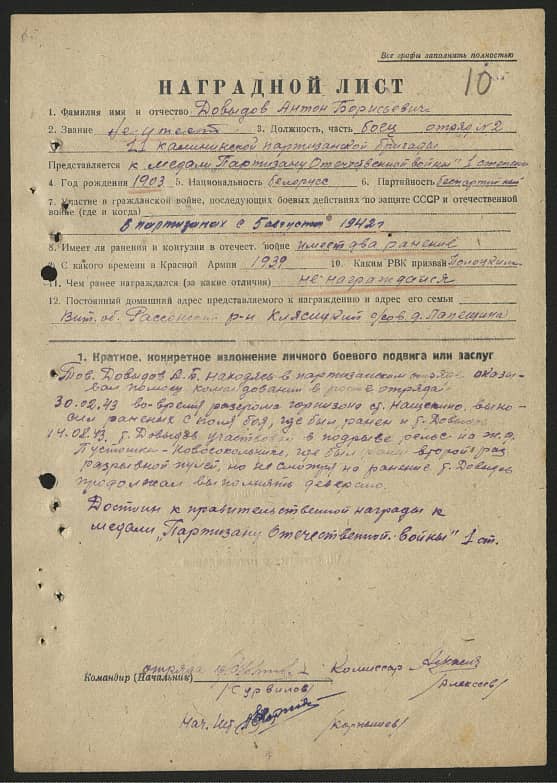 Все графы заполнять полностью
10
НАГРАДНОЙ ЛИСТ
1. Фамилия имя и отчество Довыдов Антон Борисьевич
2. Звание не имеет 3. Должность, часть боец отряд №2
11 калининской партизанской бригады
Представляется к медали Партизану Отечественной войны" 1 степени
4. Год рождения 1903 5. Национальность белорусс 6. Партийность беспартийный
7. Участие в гражданской войне, последующих боевых действиях по защите СССР и отечественной
войне (где и когда)
В партизанах с 5 августа 1942г
8. Имеет ли ранения и контузии в отечест. войне имеет два ранение
9. С какого времени в Красной Армии 1939 10. Каким РВК призван
11. Чем ранее награждался (за какие отличия) не награждался
12. Постоянный домашний адрес представляемого к награждению и адрес его семьи
Вит. об. Рассонский р-н Клясицкий с/сов д.
1. Краткое, конкретное изложение личного боевого подвига или заслуг
Тов. Довыдов А.Б. находясь в партизанском отряде оказы-
вал помощь командованию в росте отряда
30.02.43 во-время разгрома горнизона ст. Нащекино, выно-
сил раненых с поля боя, где был ранен и т. Довыдов
14.08.43 т. Довыдов участвовал в подрыве рельс на ж.д.
Пустошка-Новосокольники, где был ранен второй раз
разрывной пулей, но не смотря на ранение т. Довыдов
продолжал выполнять
Достоин к правительственной награды к
медали „Партизану Отечественной войны" 1 ст.
Командир (Начальник) отряда
Комиссар
(Сурвилов)
(Алексеев)
Нач. Шт.
(Корнышев)